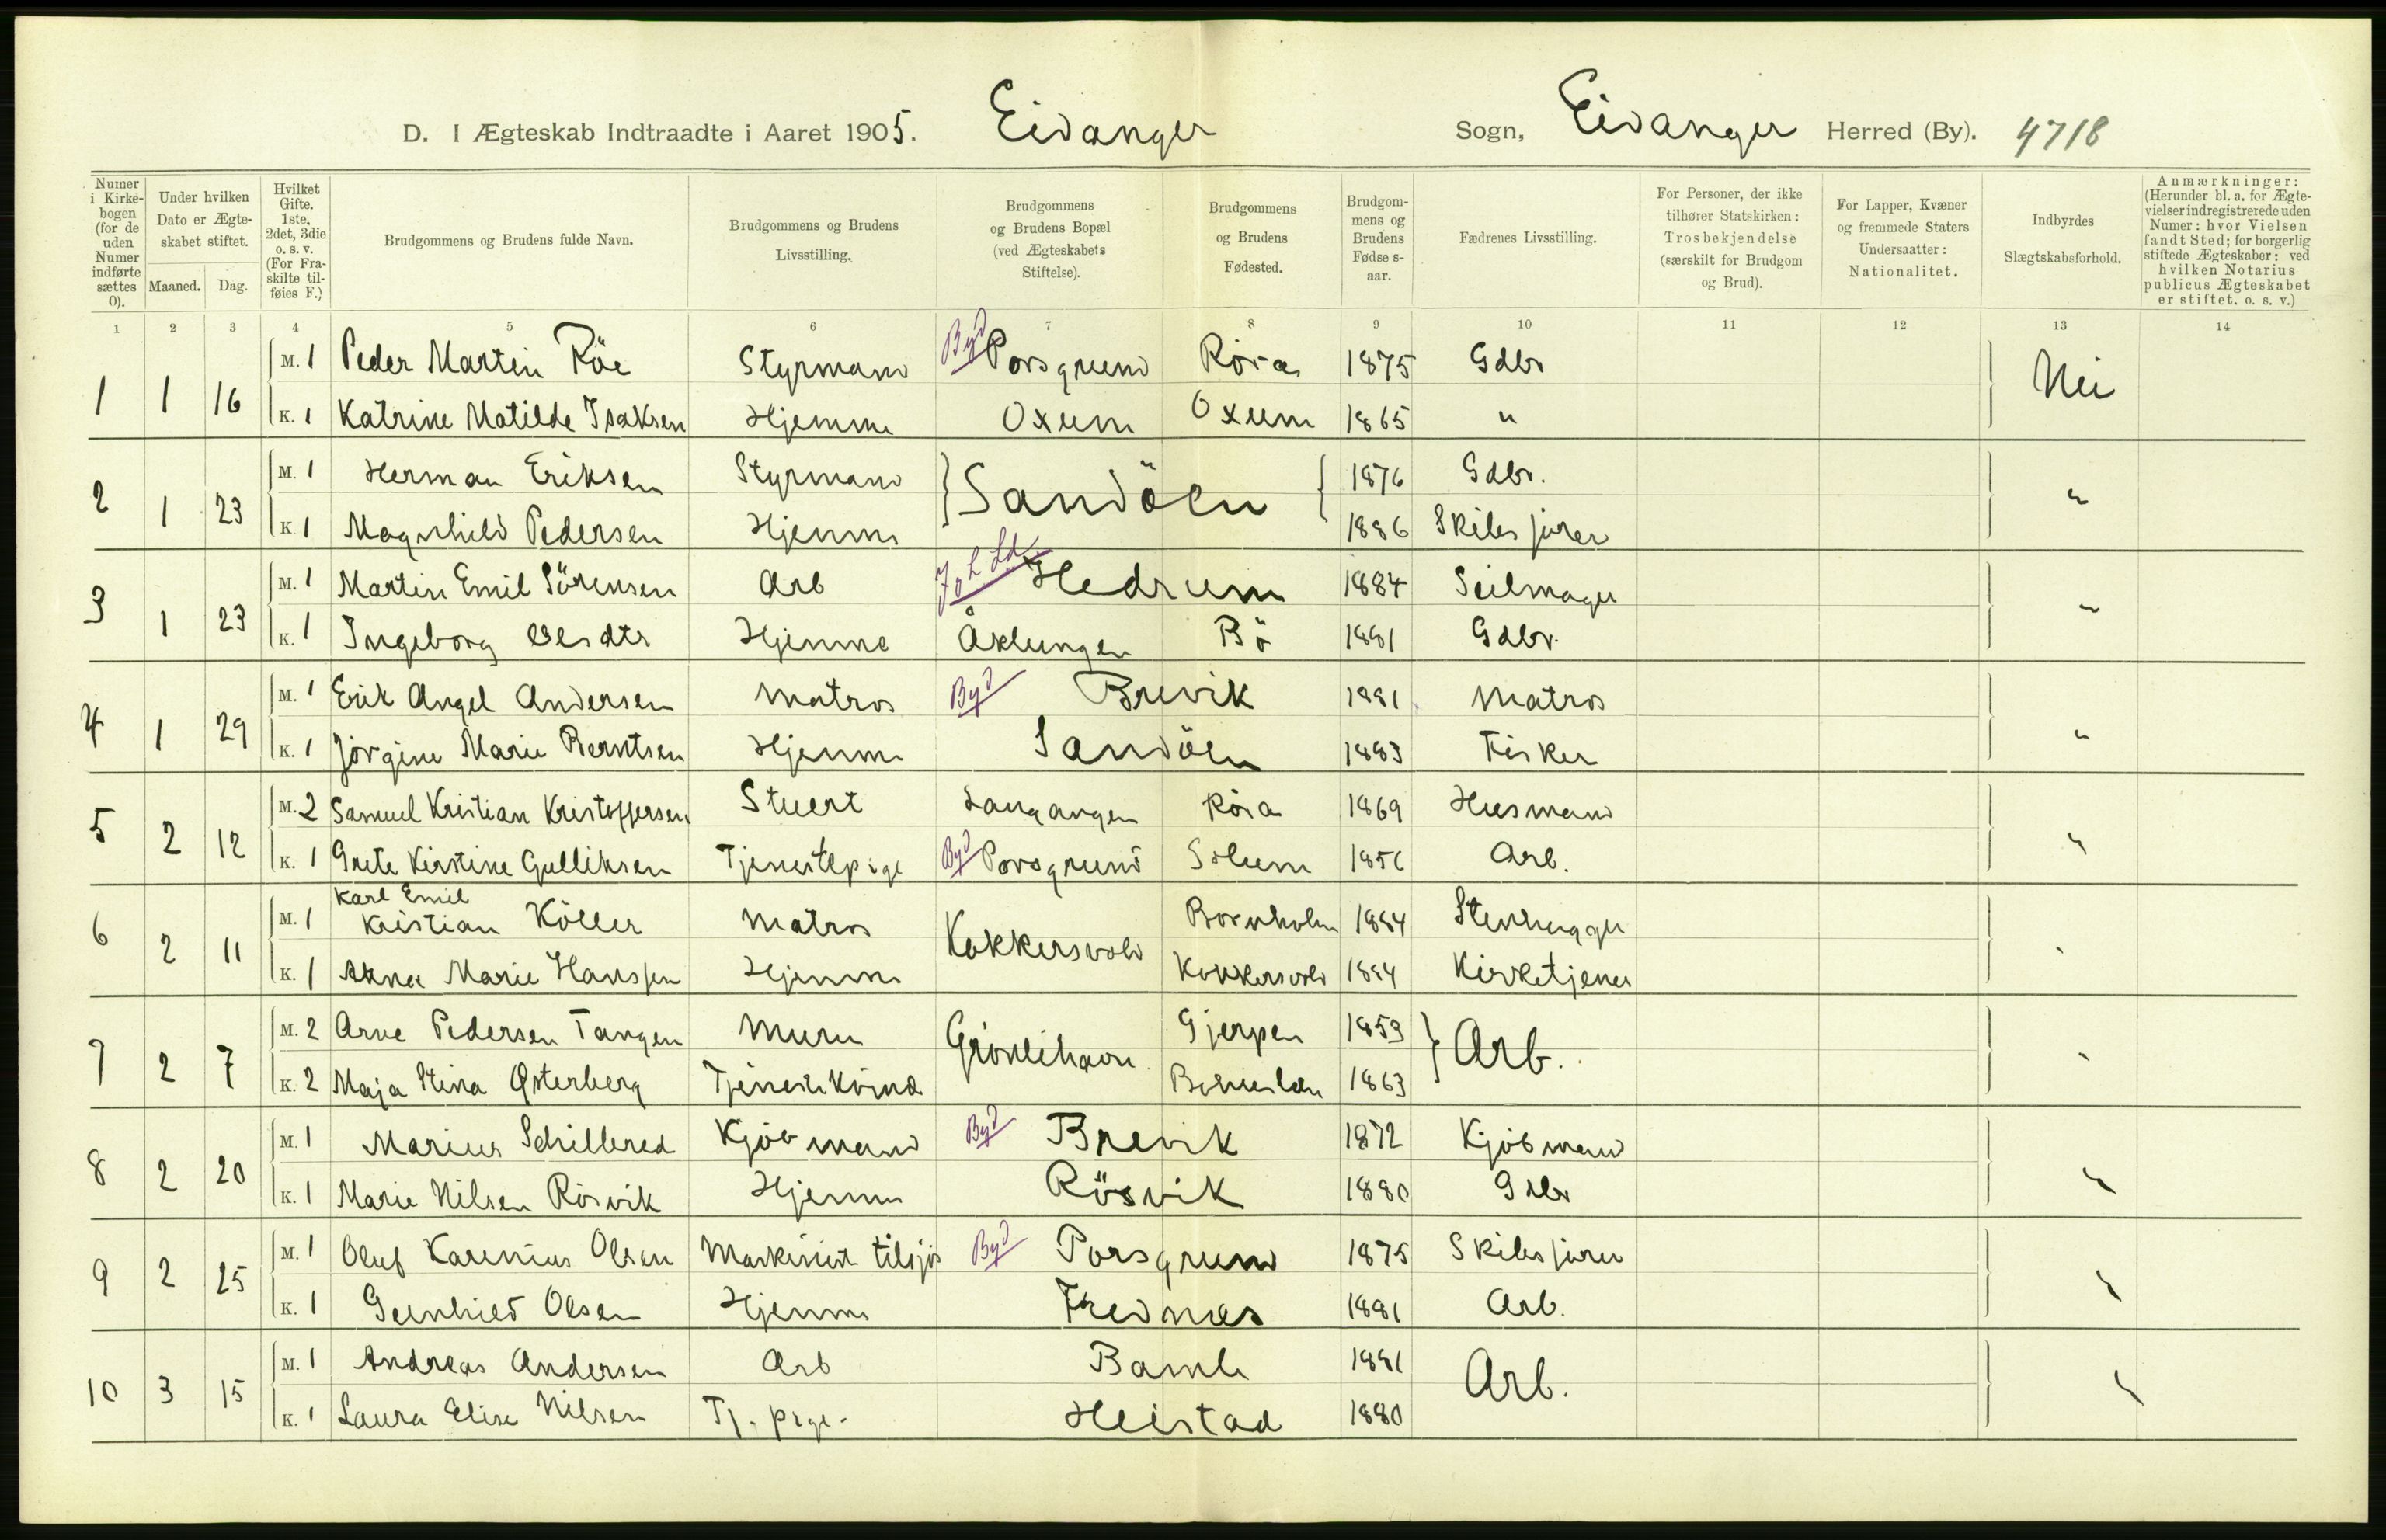 D. I Ægteskab Indtraadte i Aaret 1905. Eidanger Sogn, Eidanger Herred (By). 4718
Numer i Kirkebogen (for de uden Numer indførte sættes 0).
Under hvilken Dato er Ægteskabet stiftet.
Maaned. Dag.
Hvilket Gifte. 1ste, 2det, 3die o. s. v. (For Fraskilte tilføies F.)
Brudgommens og Brudens fulde Navn.
Brudgommens og Brudens Livsstilling.
Brudgommens og Brudens Bopæl (ved Ægteskabets Stiftelse).
Brudgommens og Brudens Fødested.
Brudgommens og Brudens Fødselsaar.
Fædrenes Livsstilling.
For Personer, der ikke tilhører Statskirken: Trosbekjendelse (særskilt for Brudgom og Brud).
For Lapper, Kvæner og fremmede Staters Undersaatter: Nationalitet.
Indbyrdes Slægtskabsforhold.
Anmærkninger: (Herunder bl. a. for Ægtevielser indregistrerede uden Numer: hvor Vielsen fandt Sted; for borgerlig stiftede Ægteskaber: ved hvilken Notarius publicus Ægteskabet er stiftet. o. s. v.)
1 2 3 4 5 6 7 8 9 10 11 12 13 14
1 1 16 M. 1 Peder Martin Röe Styrmand Byd Porsgrund Röra 1875 Gdbr Nei
K. 1 Katrine Matilde Isaksen Hjemme Oxum Oxum 1865 "
2 1 23 M. 1 Herman Eriksen Styrmand Sandöen 1876 Gdbr. "
K 1 Magnhild Pedersen Hjemme 1886 Skibsfører
3 1 23 M. 1 Martin Emil Sörensen Arb J. L. Ld. Hedrum 1884 Seilmager "
K. 1 Ingeborg Olsdtr Hjemme Åklungen Bö 1881 Gdbr.
4 1 29 M. 1 Erik Angel Andersen Matros Byd Brevik 1881 Matros "
K. 1 Jörgine Marie Berntsen Hjemme Sandöen 1883 Fisker
5 2 12 M. 2 Samuel Kristian Kristoffersen Stuert Langangen Röra 1869 Husmand "
K. 1 Grete Kirstine Gulliksen Tjenestepige Byd Porsgrund Solum 1856 Arb.
6 2 11 M. 1 Karl Emil Kristian Köller Matros Kokkersvold Bornholm 1884 Stenhugger "
K. 1 Anna Marie Hanssen Hjemme Kokkersvold 1884 Kirketjener
7 2 7 M. 2 Arne Pedersen Tangen Murer Grönlihavn Gjerpen 1853 Arb. "
K. 2 Maja Stina Østerberg Tjenestekvinde 1863
8 2 20 M. 1 Marius Schillered Kjöbmand Byd Brevik 1872 Kjöbmand "
K. 1 Marie Nilsen Rösvik Hjemme Rösvik 1880 Gdbr
9 2 25 M. 1 Oluf Karenius Olsen Maskinist tilsjös Byd Porsgrund 1875 Skibsförer "
K. 1 Gunhild Olsen Hjemme Frednes 1881 Arb.
10 3 15 M. 1 Andreas Andersen Arb Bamle 1881 Arb. "
K. 1 Laura Elise Nilsen Tj. pige. Heistad 1880